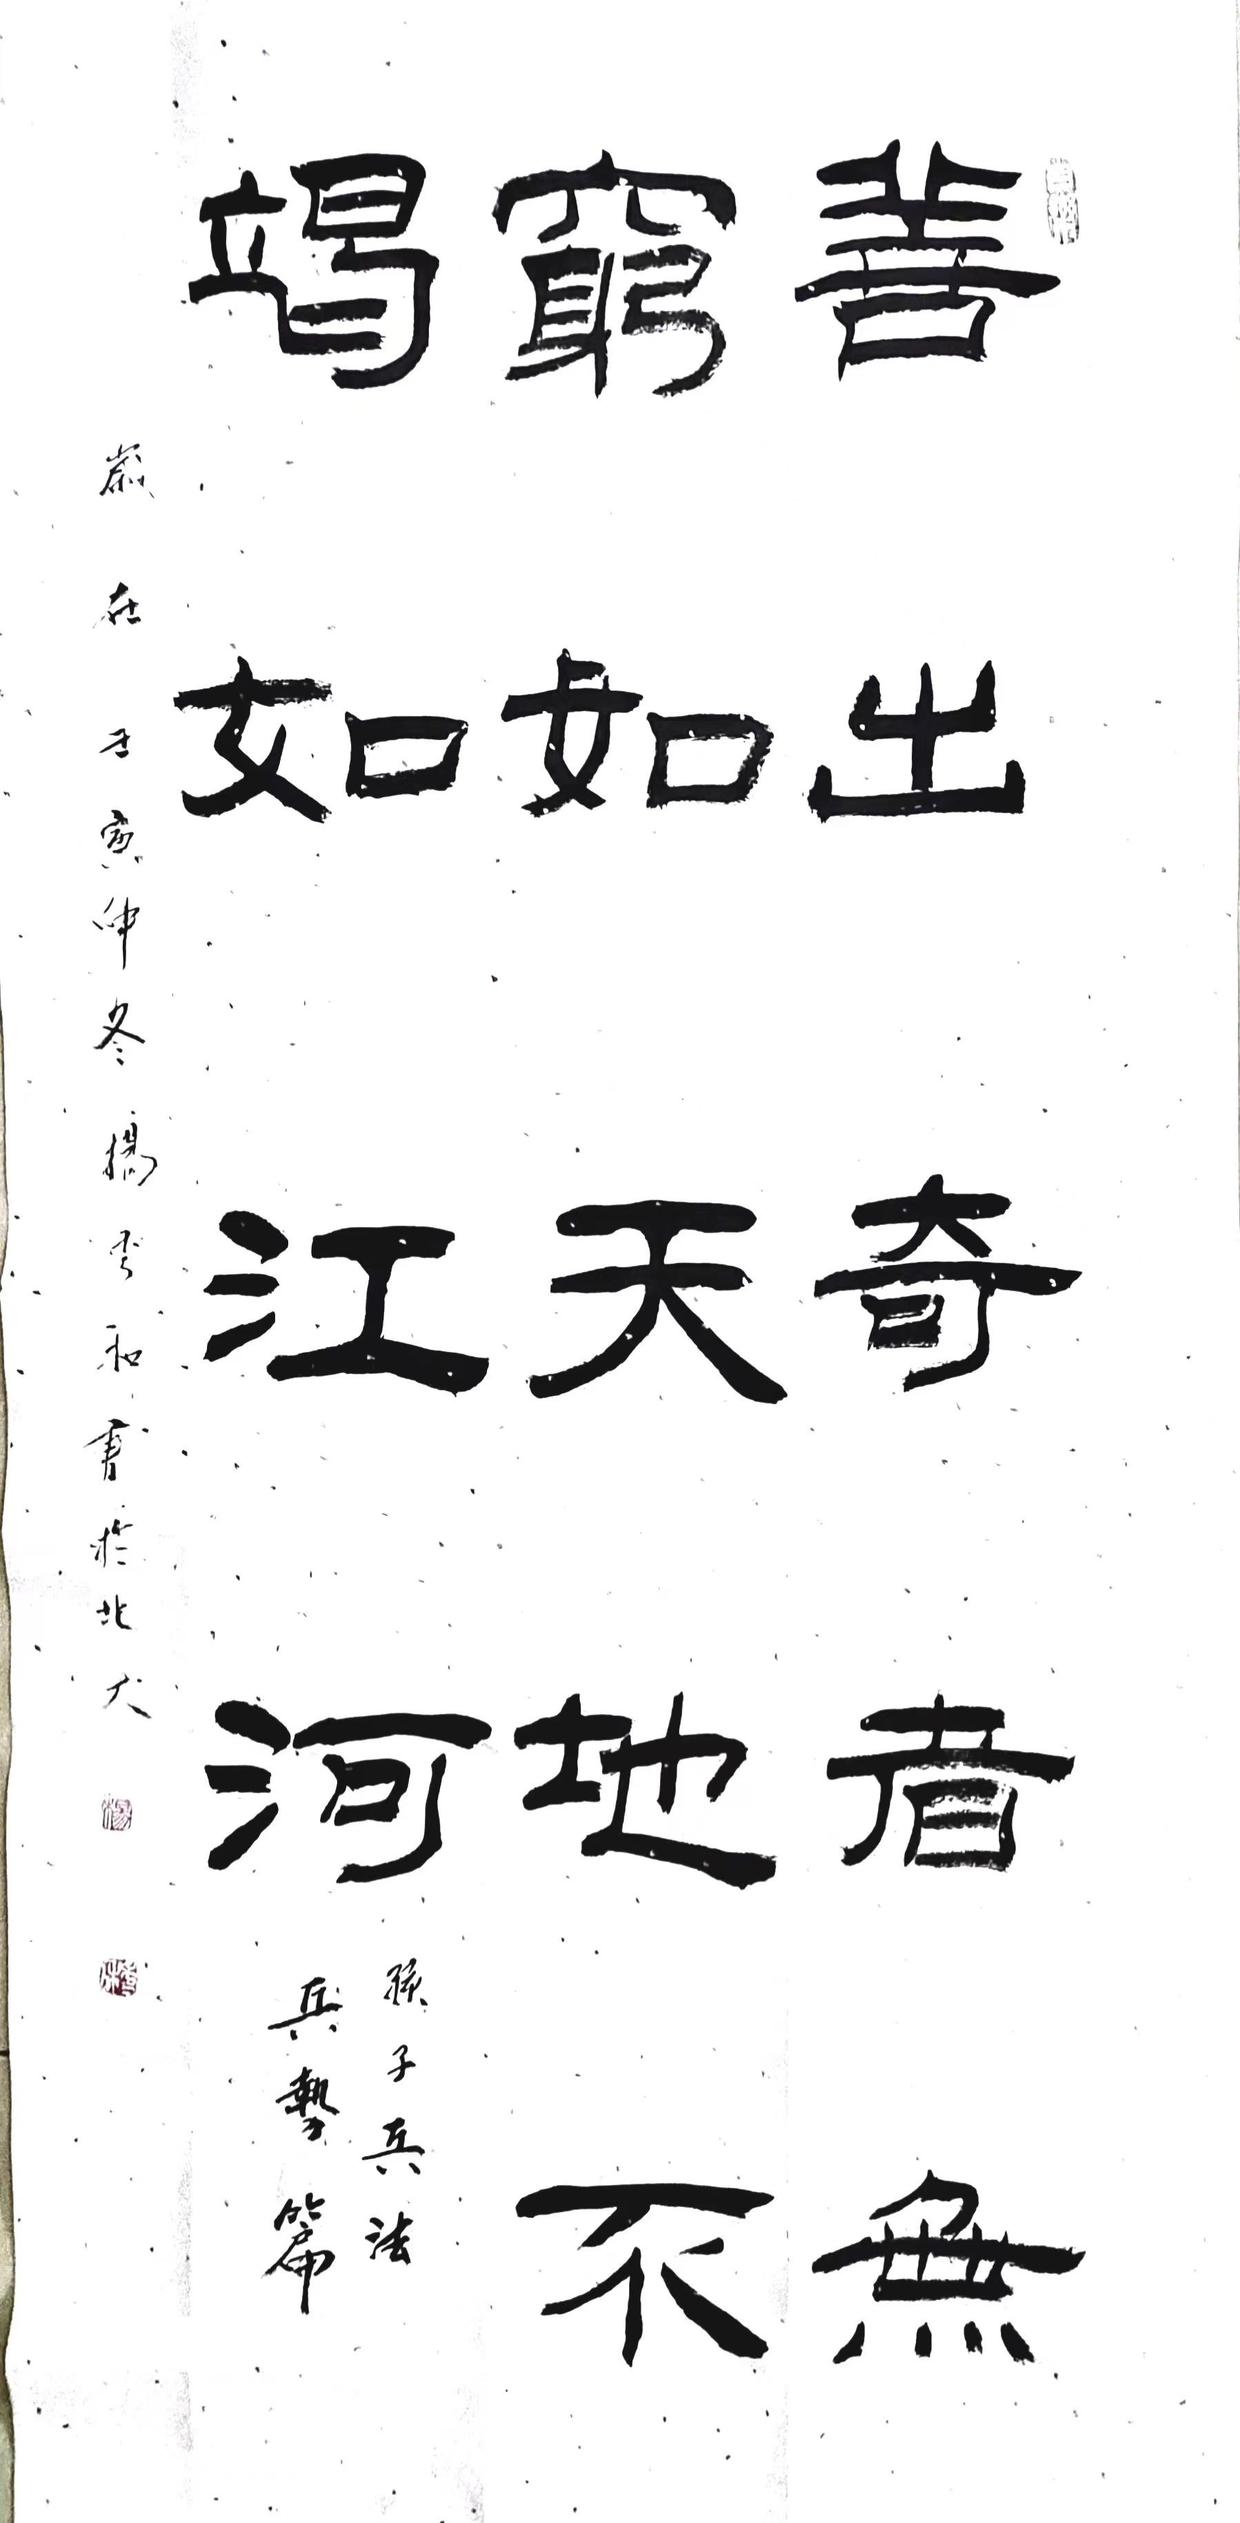 善出奇者無
窮如天地不
竭如江河
孫子兵法
兵勢篇
歲在壬寅仲冬楊秀和書於北大